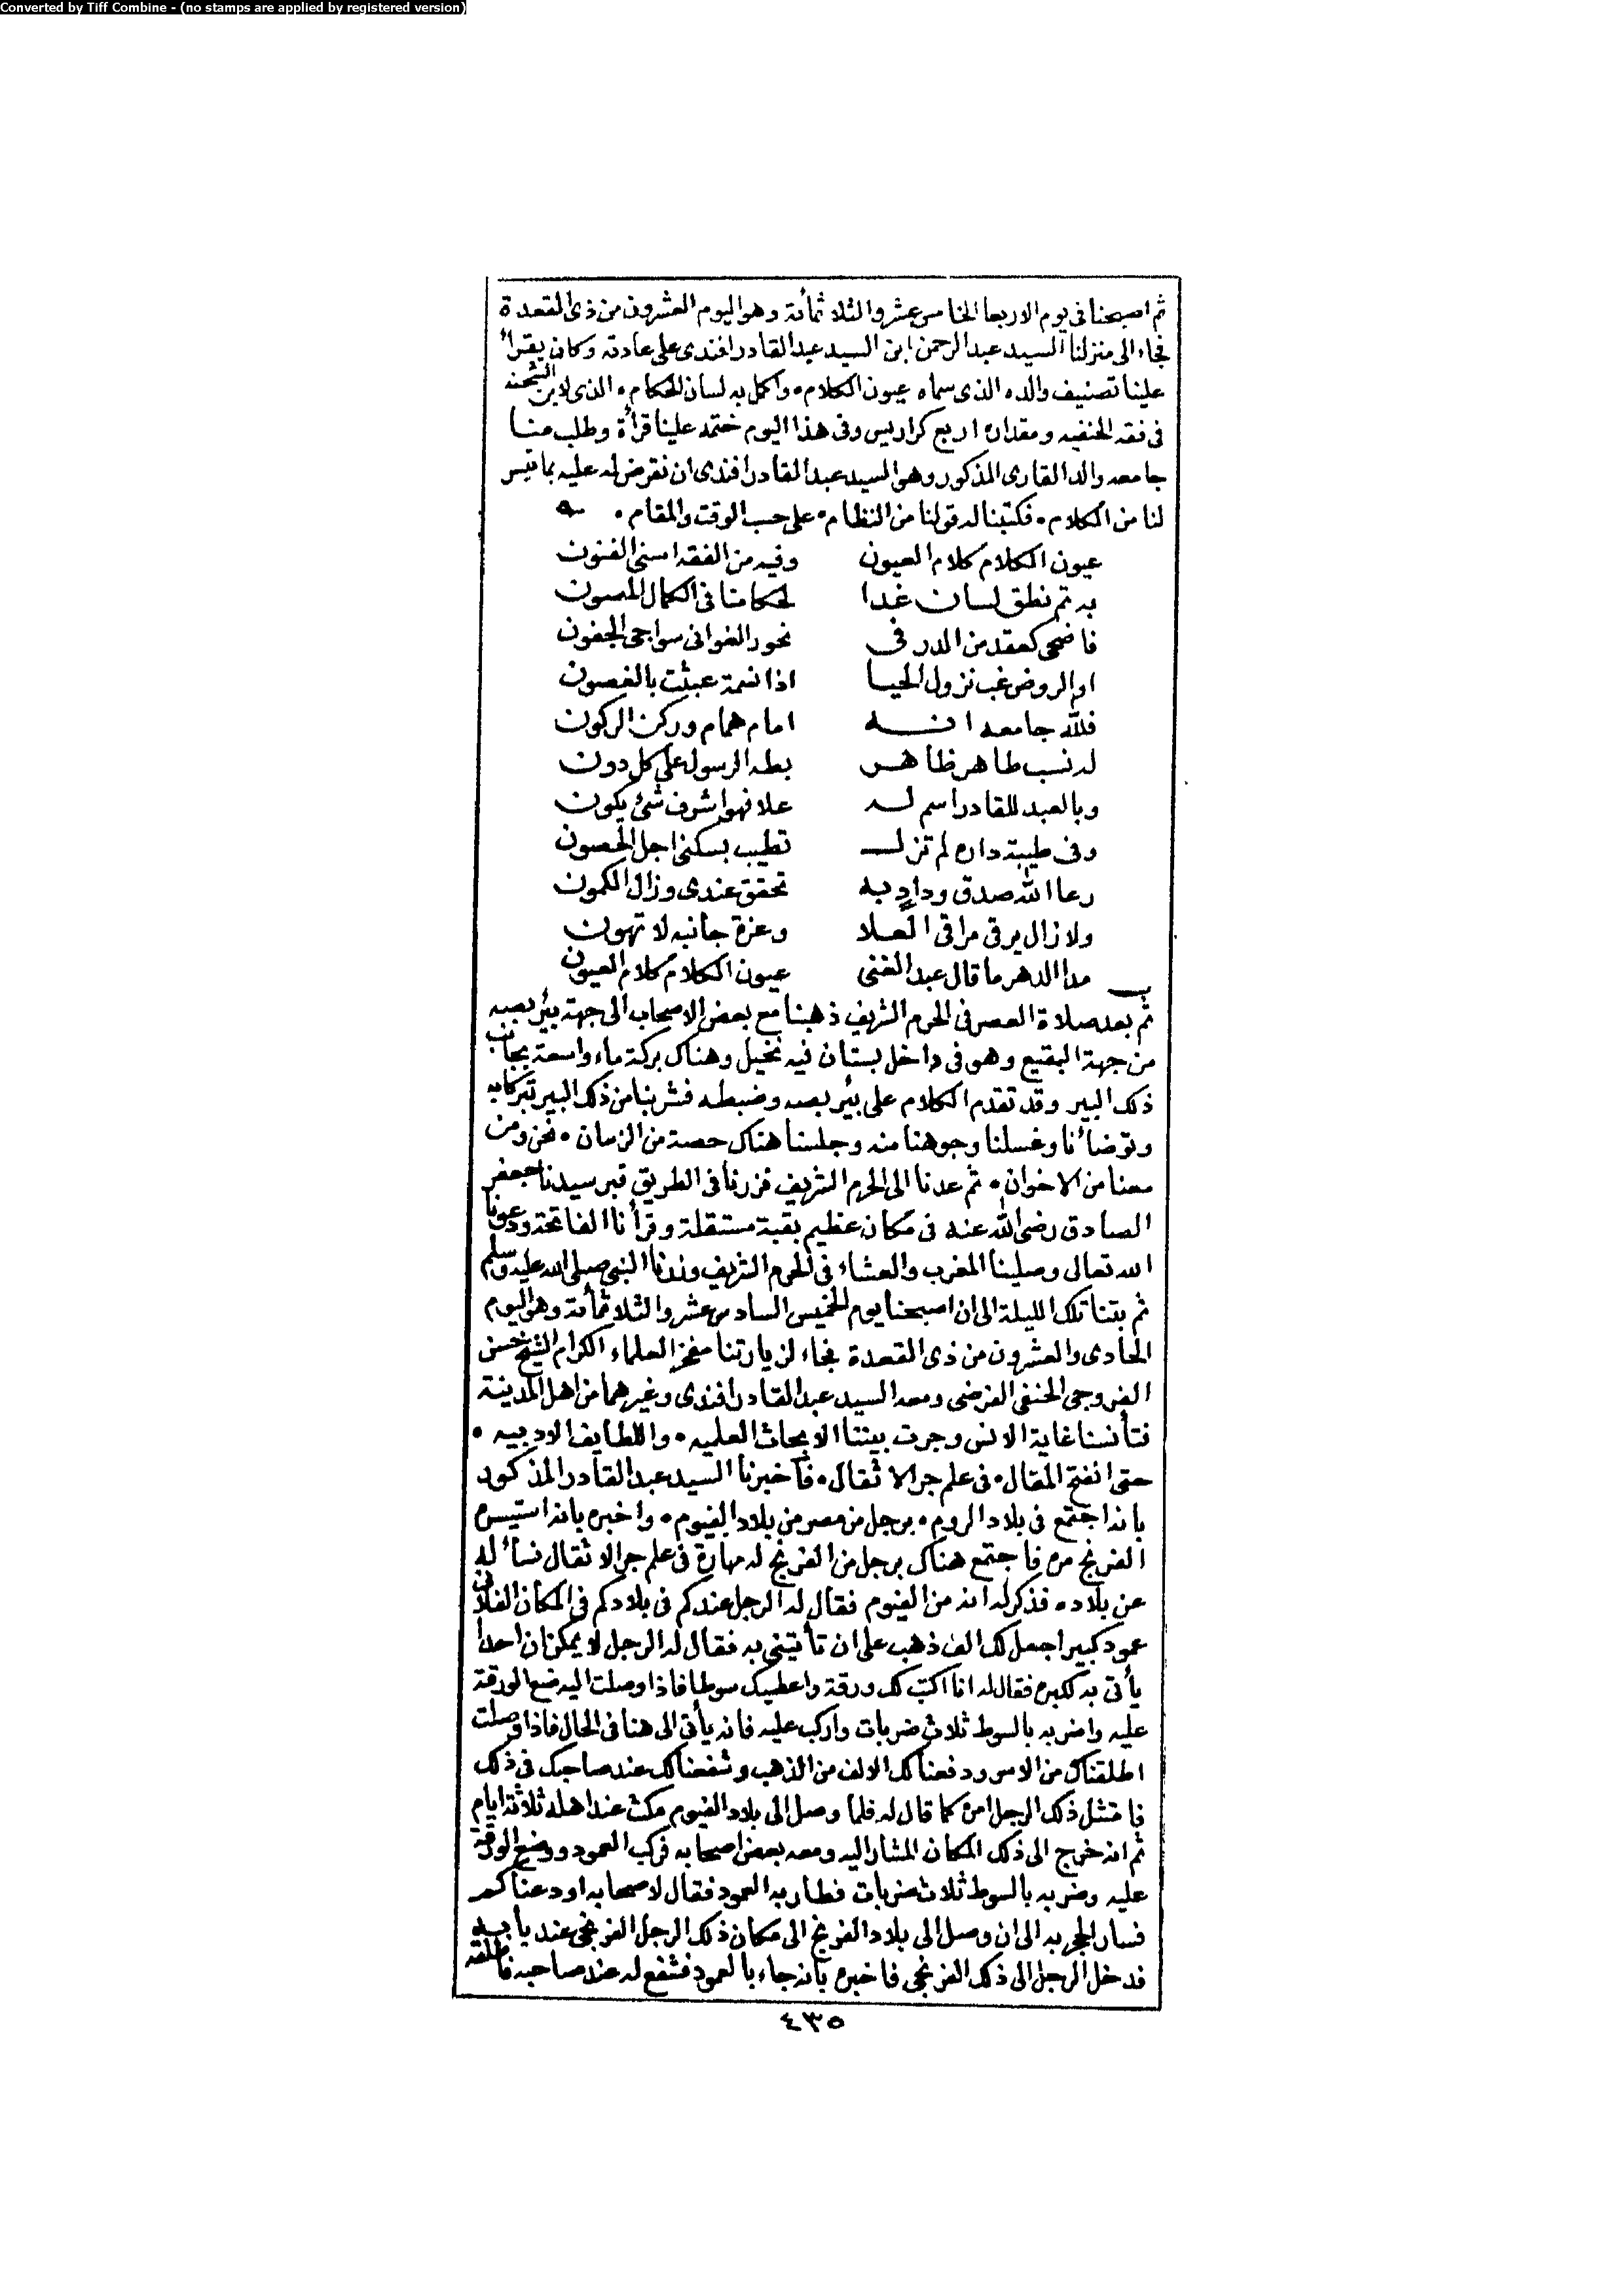 Converted by Tiff Combine - (no stamps are applied by registered version)
ثم اصبحنا فى يوم الاربعا الخامس عشر والثلاثمأئة وهو اليوم العشرون من ذى القعدة
فجاء الى منزلنا السيد عبد الرحمن ابن السيد عبد القادر افندى على عادته وكان يقرأ
علينا تصنيف والده الذى سماه عيون الكلام، واكمل به لسان الحكام، الذى لابن الشحنه
فى فقه الحنفيه ومقداره اربع كراريس وفى هذا اليوم ختمه علينا قرأة وطلب منا
جامعه والد القارى المذكور وهو السيد عبد القادر افندى ان نقرض له عليه بما تيسر
لنا من الكلام، فكتبنا له قولنا من النظام، على حسب الوقت والمقام،
عيون الكلام كلام العيون وفيه من الفقه اسنى الفنون
به تم نطق لسان غدا لحكامنا فى الكمال المصون
فاضحى كعقد من الدر فى نحور الغوانى سواجى الجفون
او الروض غب نزول الحيا اذا نسمة عبثت بالغصون
فلله جامعه انه امام همام وركن الركون
له نسب طاهر ظاهر بطه الرسول على كل دون
وبالعبد للقادر اسم له علا فهو اشرف شئ يكون
وفى طيبة داره لم تزل تطيب بسكنى اجل الحصون
رعا الله صدق وداد به تحقق عندى وزال الكمون
ولا زال يرقى مراقى العلا وعزة جانبه لا تهون
مدا الدهر ما قال عبد الغنى عيون الكلام كلام العيون
ثم بعد صلاة العصر فى الحرم الشريف ذهبنا مع بعض الاصحاب الى جهة بئر بصه
من جهة البقيع وهو فى داخل بستان فيه نخيل وهناك بركة ماء واسعة بجانب
ذلك البير وقد تقدم الكلام على بئر بصه وضبطه فشربنا من ذلك البير تبركا به
وتوضأنا وغسلنا وجوهنا منه وجلسنا هناك حصة من الزمان، نحن ومن
معنا من الاخوان، ثم عدنا الى الحرم الشريف فزرنا فى الطريق قبر سيدنا جعفر
الصادق رضى الله عنه فى مكان عظيم بقبة مستقلة وقرأنا الفاتحة ودعونا
الله تعالى وصلينا المغرب والعشاء فى الحرم الشريف وزرنا النبى صلى الله عليه وسلم
ثم بتنا تلك الليلة الى ان اصبحنا يوم الخميس السادس عشر والثلاثمأئة وهو اليوم
الحادى والعشرون من ذى القعدة فجاء لزيارتنا مفخر العلماء الكرام الشيخ حسن
الحنفى الفرضى ومعه السيد عبد القادر افندى وغيرهما من اهل المدينة
فتأنسنا غاية الانس وجرت بيننا الابحاث العلميه، واللطايف الادبيه،
حتى انفتح المقال، فى علم جر الاثقال، فأخبرنا السيد عبد القادر المذكور
بانه اجتمع فى بلاد الروم، برجل من مصر من بلاد الفيوم، واخبره بانه استيسره
الفرنج مره فاجتمع هناك برجل من الفرنج له مهارة فى علم جر الاثقال فسأله
عن بلاده فذكر له انه من الفيوم فقال له الرجل عندكم فى بلادكم فى المكان الفلانى
عمود كبير اجعل لك الف ذهب على ان تأتينى به فقال له الرجل لا يمكن ان احدا
يأتى به لكبره فقال له انا اكتب لك ورقة واعطيك سوطا فاذا وصلت اليه ضع الورقة
عليه واضربه بالسوط ثلاث ضربات واركب عليه فانه يأتى الى هنا فى الحال فاذا وصلت
اطلقناك من الاسر ودفعنا لك الالف من الذهب وشفعنا لك عند صاحبك فى ذلك
فامتثل ذلك الرجل امره كما قال له فلما وصل الى بلاد الفيوم مكث عند اهله ثلاثة ايام
ثم انه خرج الى ذلك المكان المشار اليه ومعه بعض اصحابه فركب العمود ووضع الورقة
عليه وضربه بالسوط ثلاث ضربات فطار به العمود فقال لاصحابه اودعناكم
فسار الحجر به الى ان وصل الى بلاد الفرنج الى مكان ذلك الرجل الفرنجى عند بابه
فدخل الرجل الى ذلك الفرنجى فاخبره بانه جاء بالعمود فشفع له عند صاحبه فاطلقه
٤٣٥